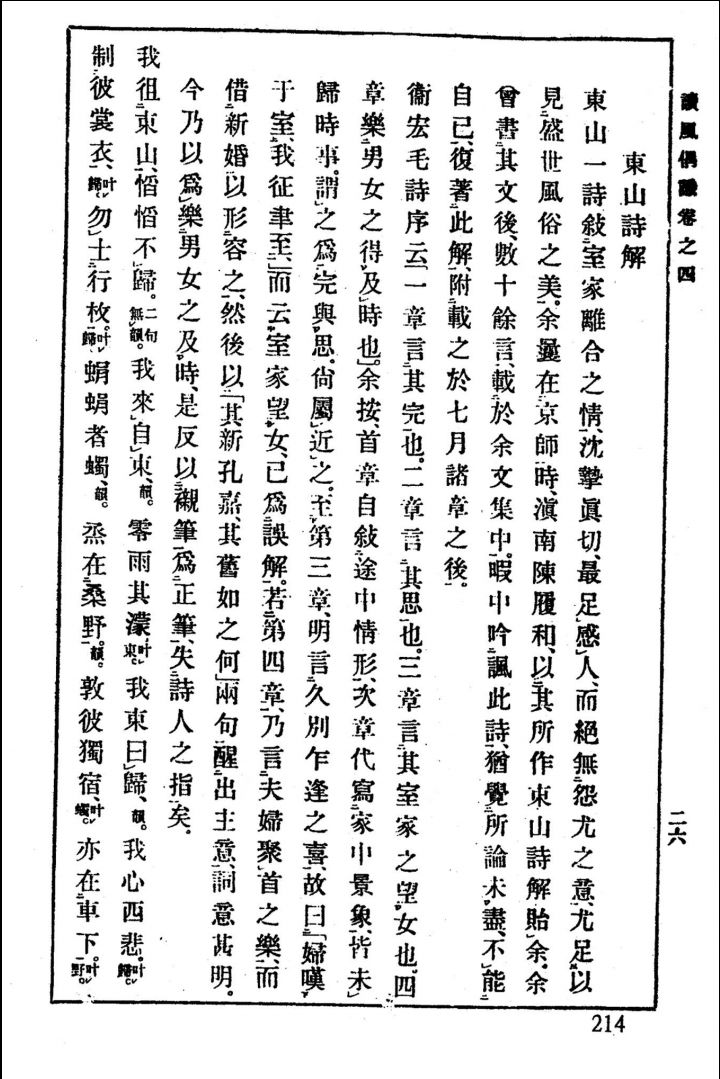 讀風偶識卷之四
二六
東山詩解
東山一詩敍室家離合之情、沈摯眞切、最足感人、而絕無怨尤之意、尤足以
見盛世風俗之美。余曩在京師時、滇南陳履和、以其所作東山詩解貽余。余
曾書其文後、數十餘言、載於余文集中。暇中吟諷此詩、猶覺所論未盡、不能
自已、復著此解、附載之於七月諸章之後。
衞宏毛詩序云「一章言其完也。二章言其思也。三章言其室家之望女也。四
章樂男女之得及時也。」余按、首章自敍途中情形、次章代寫家中景象、皆未
歸時事。謂之爲完與思。尙屬近之。至第三章、明言久別乍逢之喜、故曰「婦嘆
于室、我征聿至、」而云室家望女、已爲誤解。若第四章、乃言夫婦聚首之樂、而
借新婚以形容之、然後以「其新孔嘉、其舊如之何」兩句醒出主意、詞意甚明。
今乃以爲樂男女之及時、是反以襯筆爲正筆、失詩人之指矣。
我徂東山、慆慆不歸。二句無韻。我來自東、韻。零雨其濛叶東。我東曰歸、韻。我心西悲。叶歸。
制彼裳衣、叶歸。勿士行枚。叶歸。蜎蜎者蠋、韻。烝在桑野。韻。敦彼獨宿、叶蠋。亦在車下。叶野。
214